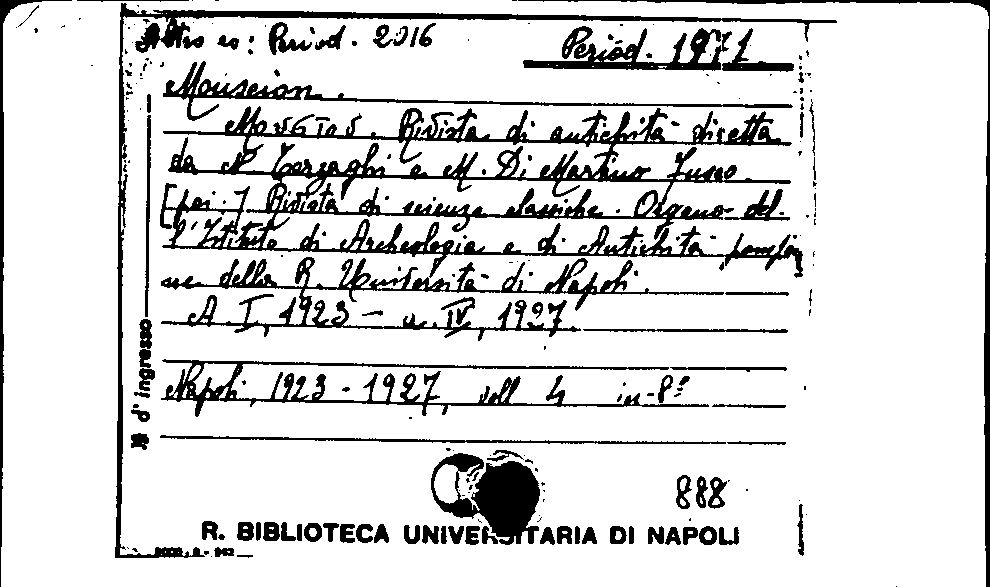 Altro es: Period. 2016
Period. 1971
Mouseion.
Μουσεῖον. Rivista di antichità diretta
da N. Terzaghi e M. Di Martino Fusco.
[poi:] Rivista di scienze classiche. Organo del-
l'Istituto di Archeologia e di Antichità pompeia
ne della R. Università di Napoli.
A. I, 1923 - a. IV, 1927.
Napoli, 1923 - 1927, voll 4 in-8º
№ d'ingresso
888
R. BIBLIOTECA UNIVERSITARIA DI NAPOLI